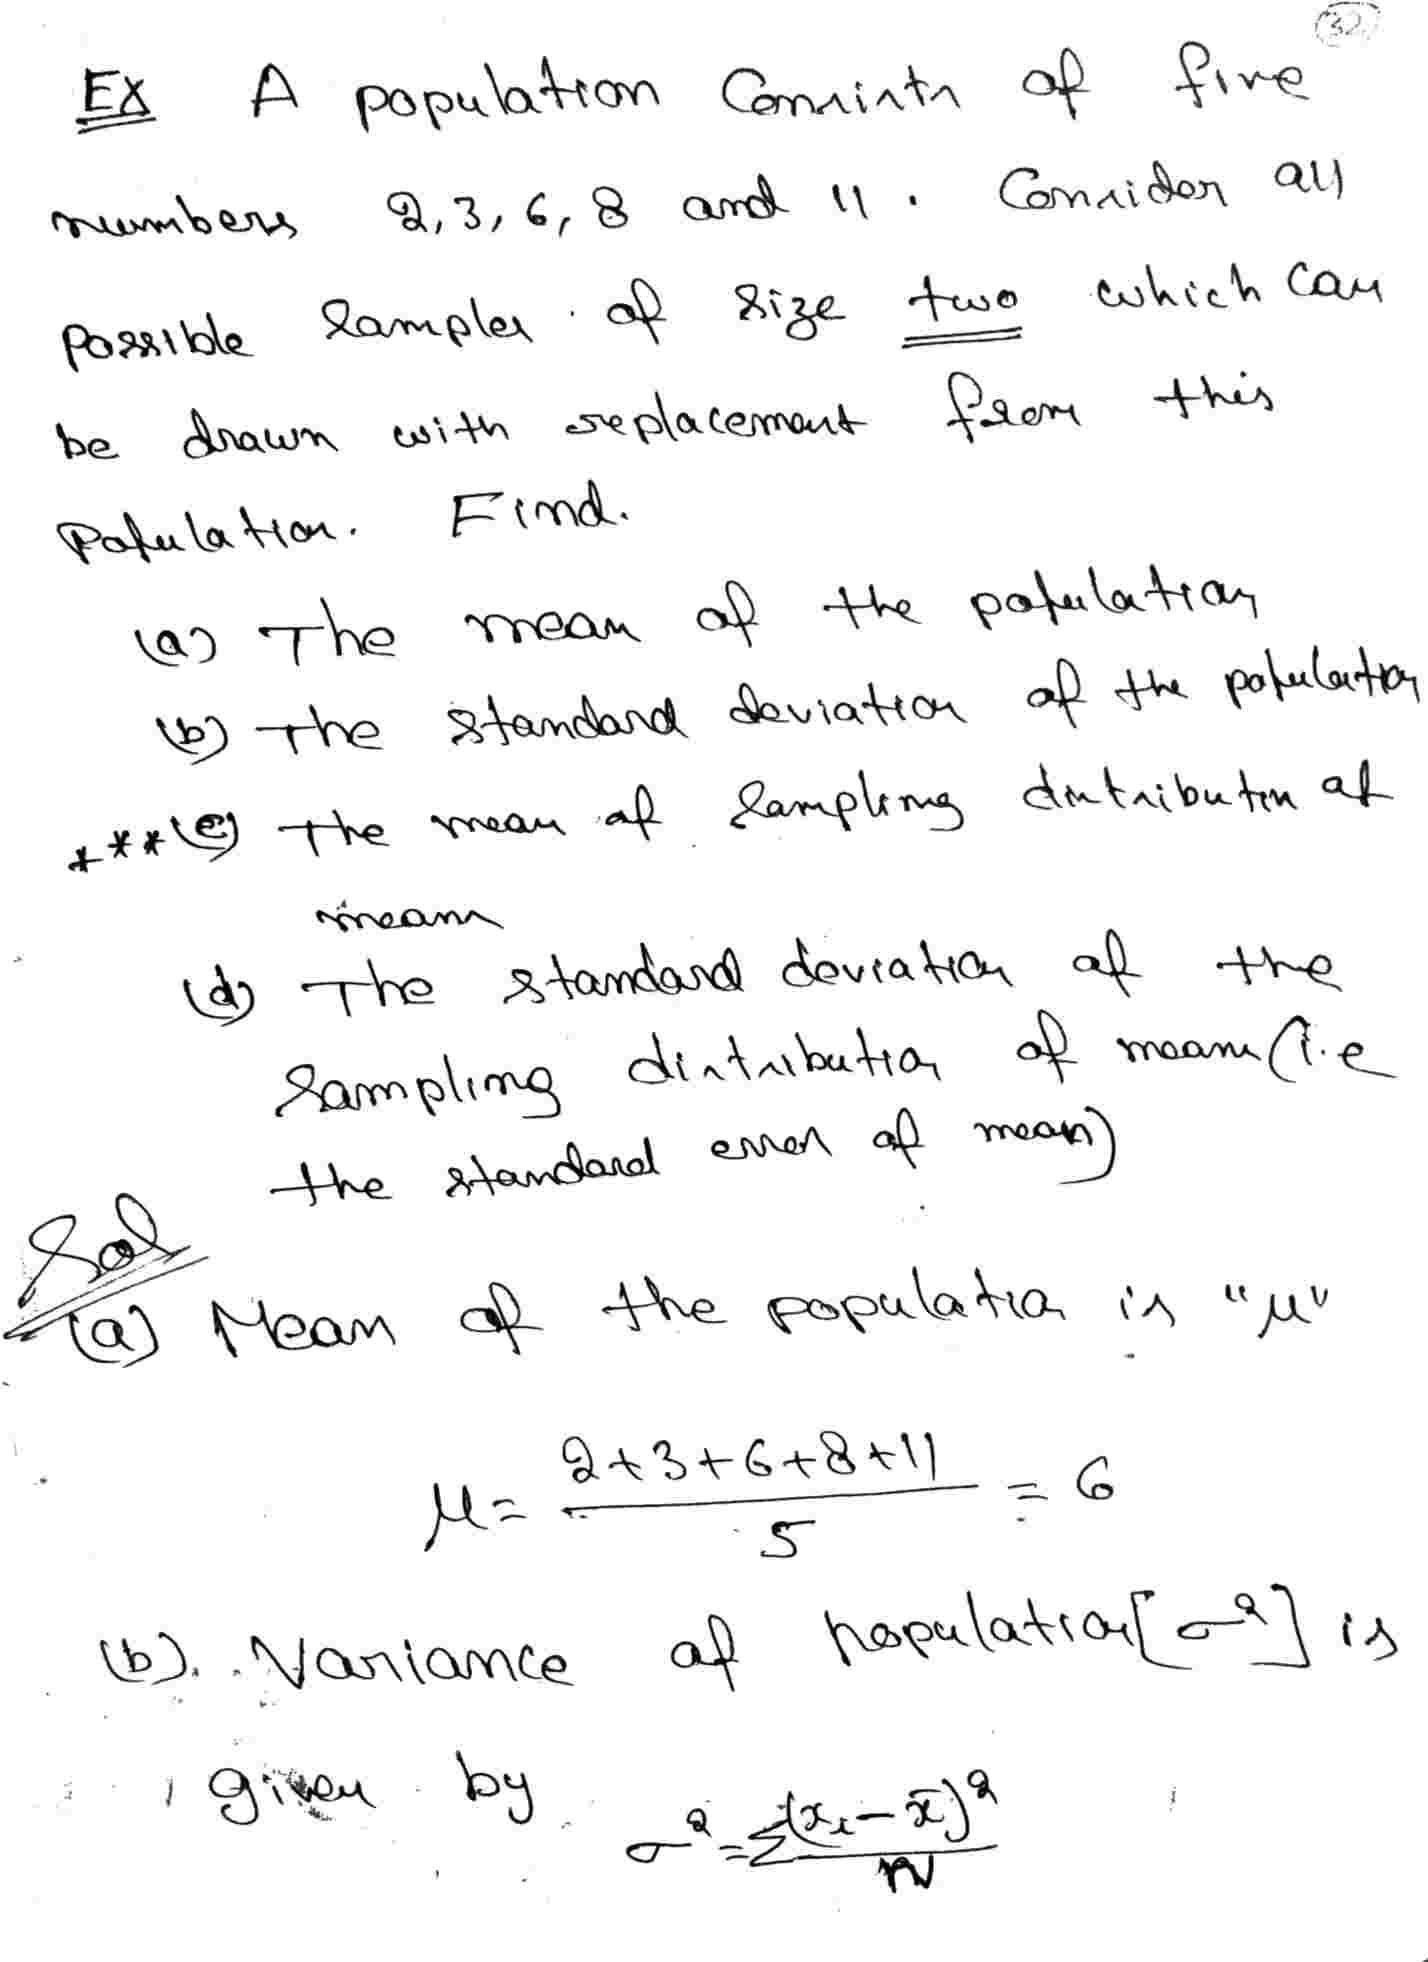 32
Ex A population Consists of five
numbers 2, 3, 6, 8 and 11. Consider all
possible samples of size two which can
be drawn with replacement from this
Population. Find.
(a) The mean of the population
(b) The standard deviation of the population
***(c) The mean of sampling distribution of
means
(d) The standard deviation of the
sampling distribution of means (i.e
the standard error of mean)
Sol
(a) Mean of the population is "μ"
μ = 2+3+6+8+11 / 5 = 6
(b). Variance of population [σ²] is
given by
σ² = Σ(xᵢ - x̄)² / N